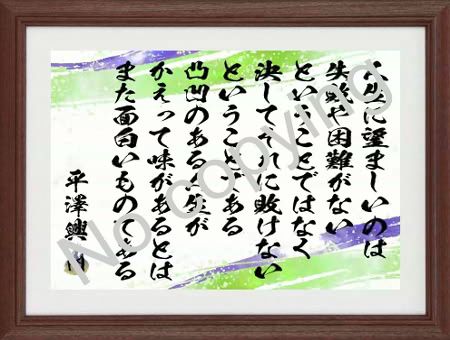 人生に望ましいのは
失敗や困難がない
ということではなく
決してそれに敗けない
ということである
凸凹のある人生が
かえって味があるとは
また面白いものである
平澤興
No copying